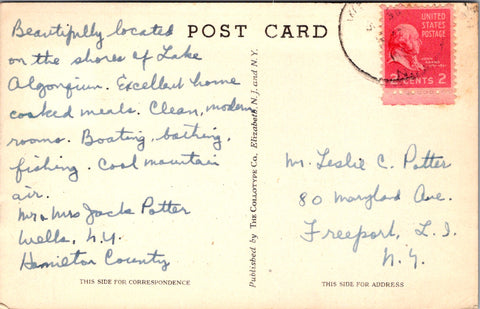 POST CARD
UNITED
STATES
POSTAGE
CENTS 2
Beautifully located
on the shores of Lake
Algonquin. Excellent home
cooked meals. Clean, modern
rooms. Boating, bathing,
fishing. Cool mountain
air.
Mr & Mrs Jack Potter
Wells, N.Y.
Hamilton County
THIS SIDE FOR CORRESPONDENCE
Published by THE COLLOTYPE CO., Elizabeth, N. J. and N. Y.
Mr. Leslie C. Potter
80 Maryland Ave.
Freeport, L. I.
N. Y.
THIS SIDE FOR ADDRESS